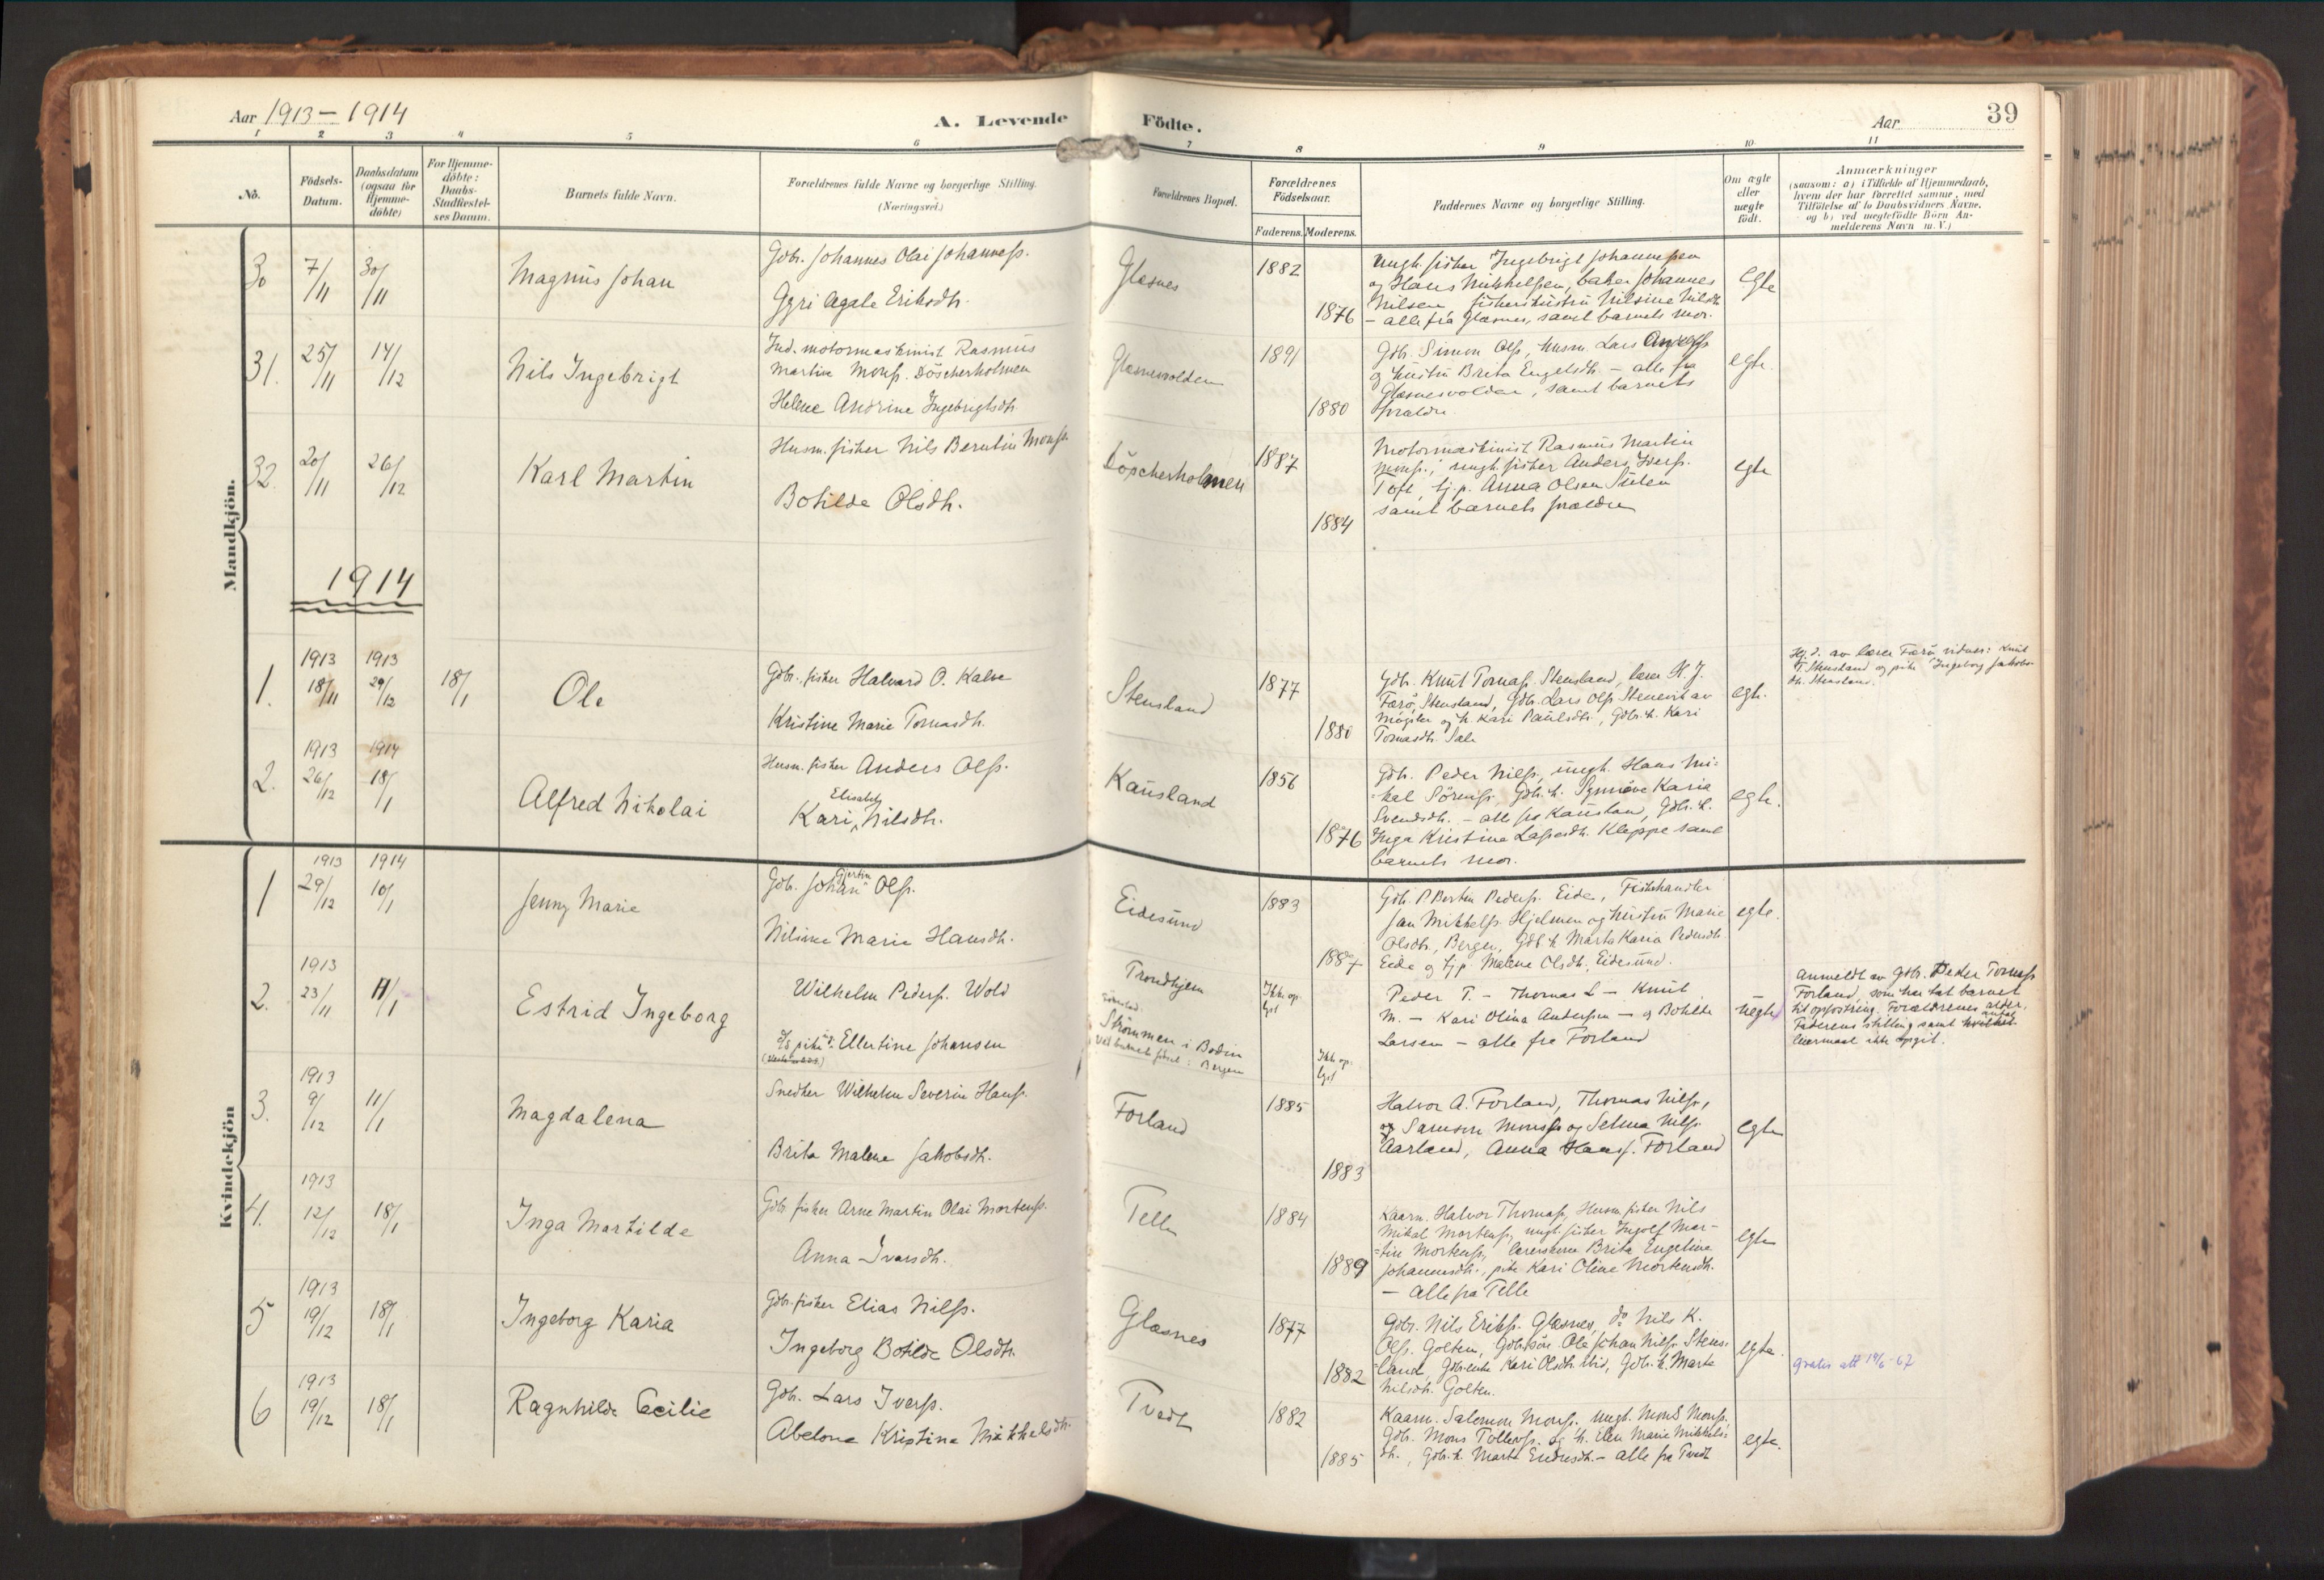 Aar 1913 – 1914
A. Levende
Födte.
Aar
39
1 2 3 4 5 6 7 8 9 10 11
No.
Födsels-
Datum.
Daabsdatum
(ogsaa for
Hjemme-
döbte)
For Hjemme-
döbte:
Daabs-
Stadfæstel-
ses Datum.
Barnets fulde Navn.
Forældrenes fulde Navne og borgerlige Stilling.
(Næringsvei.)
Forældrenes Bopæl.
Forældrenes
Födselsaar.
Faderens. Moderens.
Faddernes Navne og borgerlige Stilling.
Om ægte
eller
uægte
födt.
Anmærkninger
(saasom: a) i Tilfælde af Hjemmedaab,
hvem der har forrettet samme, med
Tilföielse af to Daabsvidners Navne,
og b) ved uægtefödte Börn An-
melderens Navn m. V.)
Mandkjön.
30 7/11 30/11
Magnus Johan
Gbr. Johannes Olai Johanness.
Gyri Agate Eriksdtr.
Glesnes
1882
1876
ungk. fisker Ingebrigt Johannessen
og Hans Mikkelsen, baker Johannes
Nilsen, fiskerhustru Nilsine Nilsdtr
– alle fra Glæsnes, samt barnets mor.
egte
31. 25/11 14/12
Nils Ingebrigt
Ind. motormaskinist Rasmus
Martin Monss. Döscherholmen
Helene Andrine Ingebrigtsdtr.
Glesnesvolden
1891
1880
Gbr. Simon Olss., husm. Lars
og hustru Brita Engelsdtr. – alle fra
Glæsnesvolden, samt barnets
forældre.
egte.
32. 20/11 26/12
Karl Martin
Husm. fisker Nils Berntin Monss.
Botilde Olsdtr.
Döscherholmen
1887
1884
Motormaskinist Rasmus Martin
Monss., ungk. fisker Anders Iverss.
Toft, tj.p. Anna Olsen
samt barnets forældre
egte
1914
1. 1913 18/11 1913 29/12 18/1
Ole
Gbr. fisker Halvard O. Kalve
Kristine Marie Tomasdtr.
Stensland
1877
1880
Gbr. Knut Tomass. Stensland, lærer H. J.
Færö, Stensland, Gbr. Lars Olss. Stenevik av
Mögster og h. Kari Paulsdtr., Gbr. h. Kari
Tomasdtr. Sale
egte.
Hj. d. av lærer Færö vidner: Knut
T. Stensland og pike Ingeborg Jakobs-
dtr. Stensland.
2. 1913 26/12 1914 18/1
Alfred Nikolai
Husm. fisker Anders Olss.
Elisabet
Kari Nilsdtr.
Kausland
1856
1876
Gbr. Peder Nilss., ungk. Hans Mi-
kal Sörenss., Gbr. h. Synnöve Karia
Svendsdtr. – alle fra Kausland, Gbr. h.
Inga Kristine Lassesdtr. Kleppe samt
barnets mor.
egte.
Kvindekjön
1 1913 29/12 1914 10/1
Jenny Marie
Gjertin
Gbr. Johan Olss.
Nilsine Marie Hansdtr.
Eidesund
1883
1887
Gbr. P. Bertin Pederss. Eide, Fiskehandler
Jan Mikkelss. Hjelmen og hustru Marie
Olsdtr., Bergen, Gbr. h. Marta Karia Pedersdtr.
Eide og tj.p. Malene Olsdtr. Eidesund.
egte.
2. 1913 23/11 11/1
Estrid Ingeborg
Wilhelm Pederss. Wold
pike Ellertine Johansen
Trondhjem
Strömmen i Bodin
ved barnets födsel: Bergen
Ikke op-
lyst
Ikke op-
lyst
Peder T. – Thomas L – Knut
M. – Kari Olina Andersen – og Botilde
Larsen – alle fra Forland
uegte
Anmeldt av Gbr. Peder Tomass.
Forland, som har tat barnet
til opfostring. Forældrenes alder,
Faderens stilling samt antal
leiermaal ikke opgit.
3. 1913 9/12 11/1
Magdalena
Snedker Wilhelm Severin Hanss.
Brita Malene Jakobsdtr.
Forland
1885
1883
Halvor A. Forland, Thomas Nilss.,
og Samson Monss. og Selma Nilss.
Aarland, Anna Hanss. Forland
egte
4. 1913 12/12 18/1
Inga Martilde
Gbr. fisker Arne Martin Olai Mortenss.
Anna Ivarsdtr.
Telle
1884
1889
Kaarm. Halvor Thomass., Husm. fisker Nils
Mikal Mortenss., ungk. fisker Ingolf Mar-
tin Mortenss., lærerinne Brita Engeline
Johannesdtr., pike Kari Oline Mortensdtr.
– alle fra Telle
egte
5 1913 19/12 18/1
Ingeborg Karia
Gbr. fisker Elias Nilss.
Ingeborg Botilde Olsdtr.
Glæsnes
1877
1882
Gbr. Nils Erikss. Glæsnes, do Nils K.
Olss. Golten, Gbr. sön Ole Johan Nilss. Stens-
land, Gbr. enke Kari Olsdtr. ibid, Gbr. h. Marta
Nilsdtr. Golten.
egte.
gratis att 19/6-67
6 1913 19/12 18/1
Ragnhilde Cecilie
Gbr. Lars Iverss.
Abelone Kristine Mikkelsdtr.
Tvedt
1882
1885
Kaarm. Salomon Monss., ungk. Mons Monss.,
Gbr. Mons Tollevss. og h. Elen Marie Mikkels-
dtr., Gbr. h. Marta Endresdtr. – alle fra Tvedt
egte.